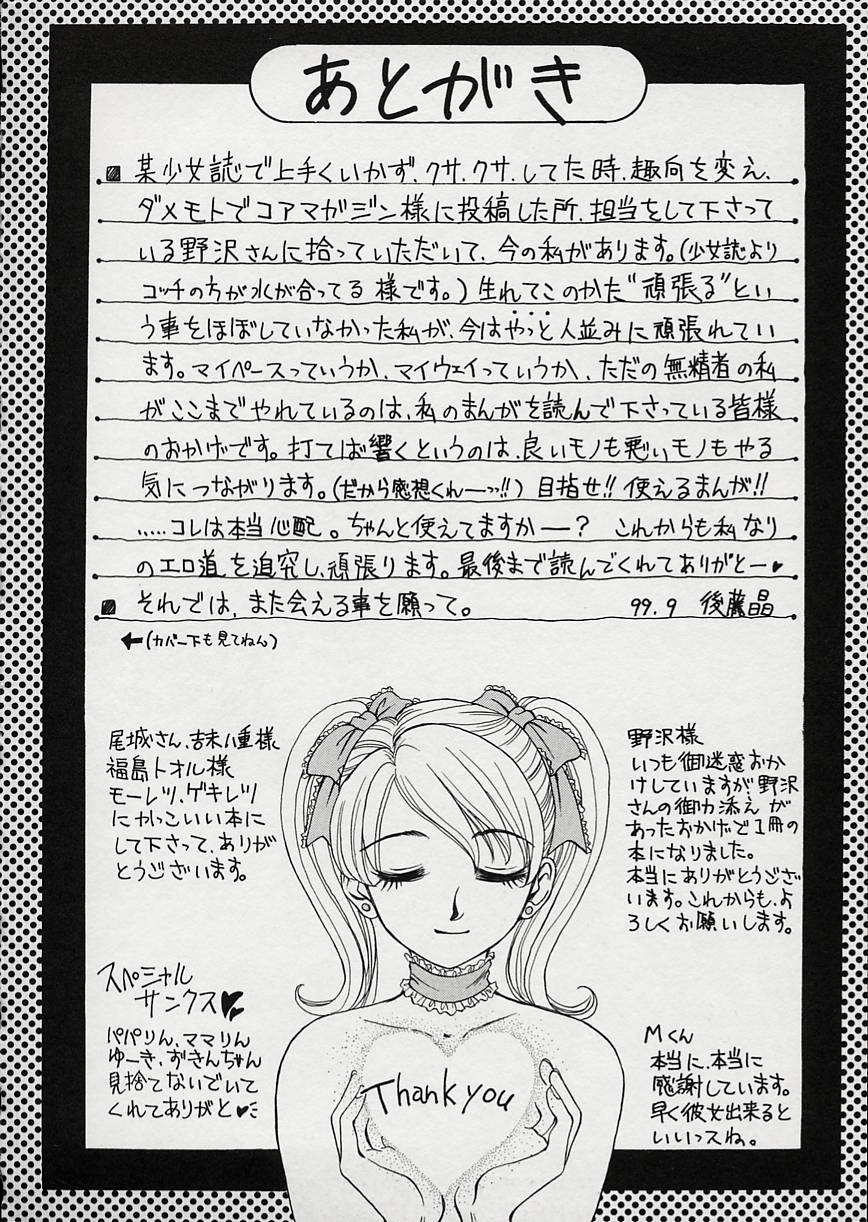 あとがき
某少女誌で上手くいかず、クサ、クサ、してた時、趣向を変え、
ダメモトでコアマガジン様に投稿した所、担当をして下さって
いる野沢さんに拾っていただいて、今の私があります。(少女誌より
コッチの方が水が合ってる 様です。) 生れてこのかた“頑張る”とい
う事をほぼしていなかった私が、今はやっと人並みに頑張れてい
ます。マイペースっていうか、マイウェイっていうか、ただの無精者の私
がここまでやれているのは、私のまんがを読んで下さっている皆様
のおかげです。打てば響くというのは、良いモノも悪いモノもやる
気につながります。(だから感想くれーっ!!) 目指せ!! 使えるまんが!!
‥‥コレは本当心配。ちゃんと使えてますかー? これからも私なり
のエロ道を追究し、頑張ります。最後まで読んでくれてありがとー♥
それでは、また会える事を願って。 99.9 後藤晶
←(カバー下も見てねん)
尾城さん、吉未八重様
福島トオル様
モーレツ、ゲキレツ
にかっこいい本に
して下さって、ありが
とうございます。
野沢様
いつも御迷惑おか
けしていますが野沢
さんの御力添えが
あったおかげで1冊の
本になりました。
本当にありがとうござい
います。これからも、よ
ろしくお願いします。
スペシャル
サンクス♥
パパりん、ママりん
ゆーき、おきんちゃん
見捨てないでいて
くれてありがと♥
Mくん
本当に、本当に
感謝しています。
早く彼女出来ると
いいっスね。
Thank you